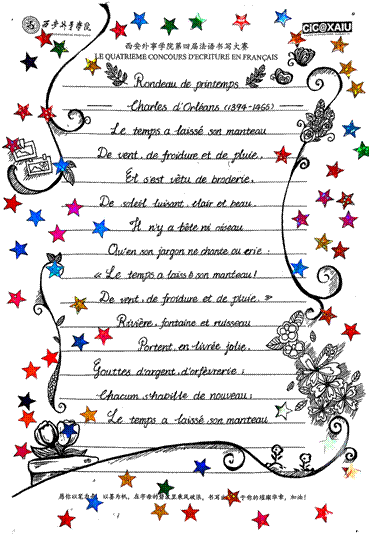 西安外事学院
CICOXAIU
西安外事学院第四届法语书写大赛
LE QUATRIEME CONCOURS D'ECRITURE EN FRANÇAIS
Rondeau de printemps
Charles d'Orléans (1394-1465)
Le temps a laissé son manteau
De vent, de froidure et de pluie,
Et s'est vêtu de broderie,
De soleil luisant, clair et beau.
Il n'y a bête ni oiseau
Qu'en son jargon ne chante ou crie:
« Le temps a laissé son manteau!
De vent, de froidure et de pluie, »
Rivière, fontaine et ruisseau
Portent, en livrée jolie,
Gouttes d'argent, d'orfèvrerie;
Chacun s'habille de nouveau:
Le temps a laissé son manteau
愿你以笔为 以墨为帆，在字母的 里乘风破浪，书写 于你的璀璨华章，加油！